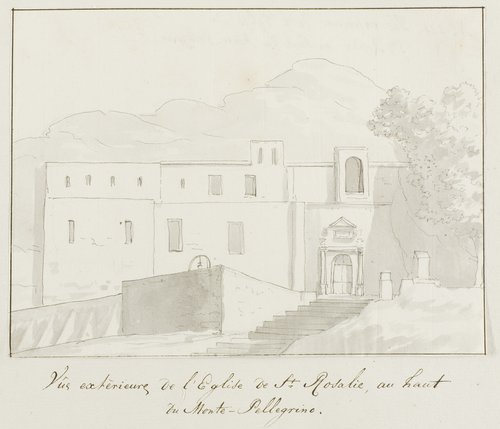 Vüe extérieure, de l'Eglise de Ste Rosalie, au haut
du Monte-Pellegrino.